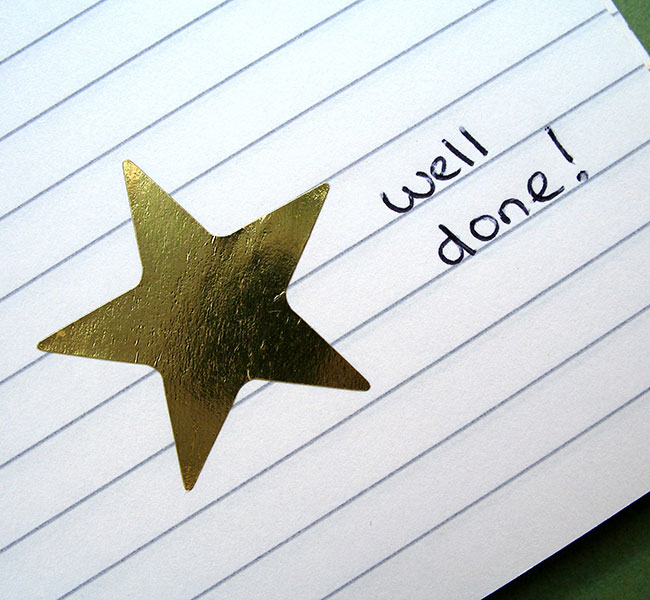 well
done!